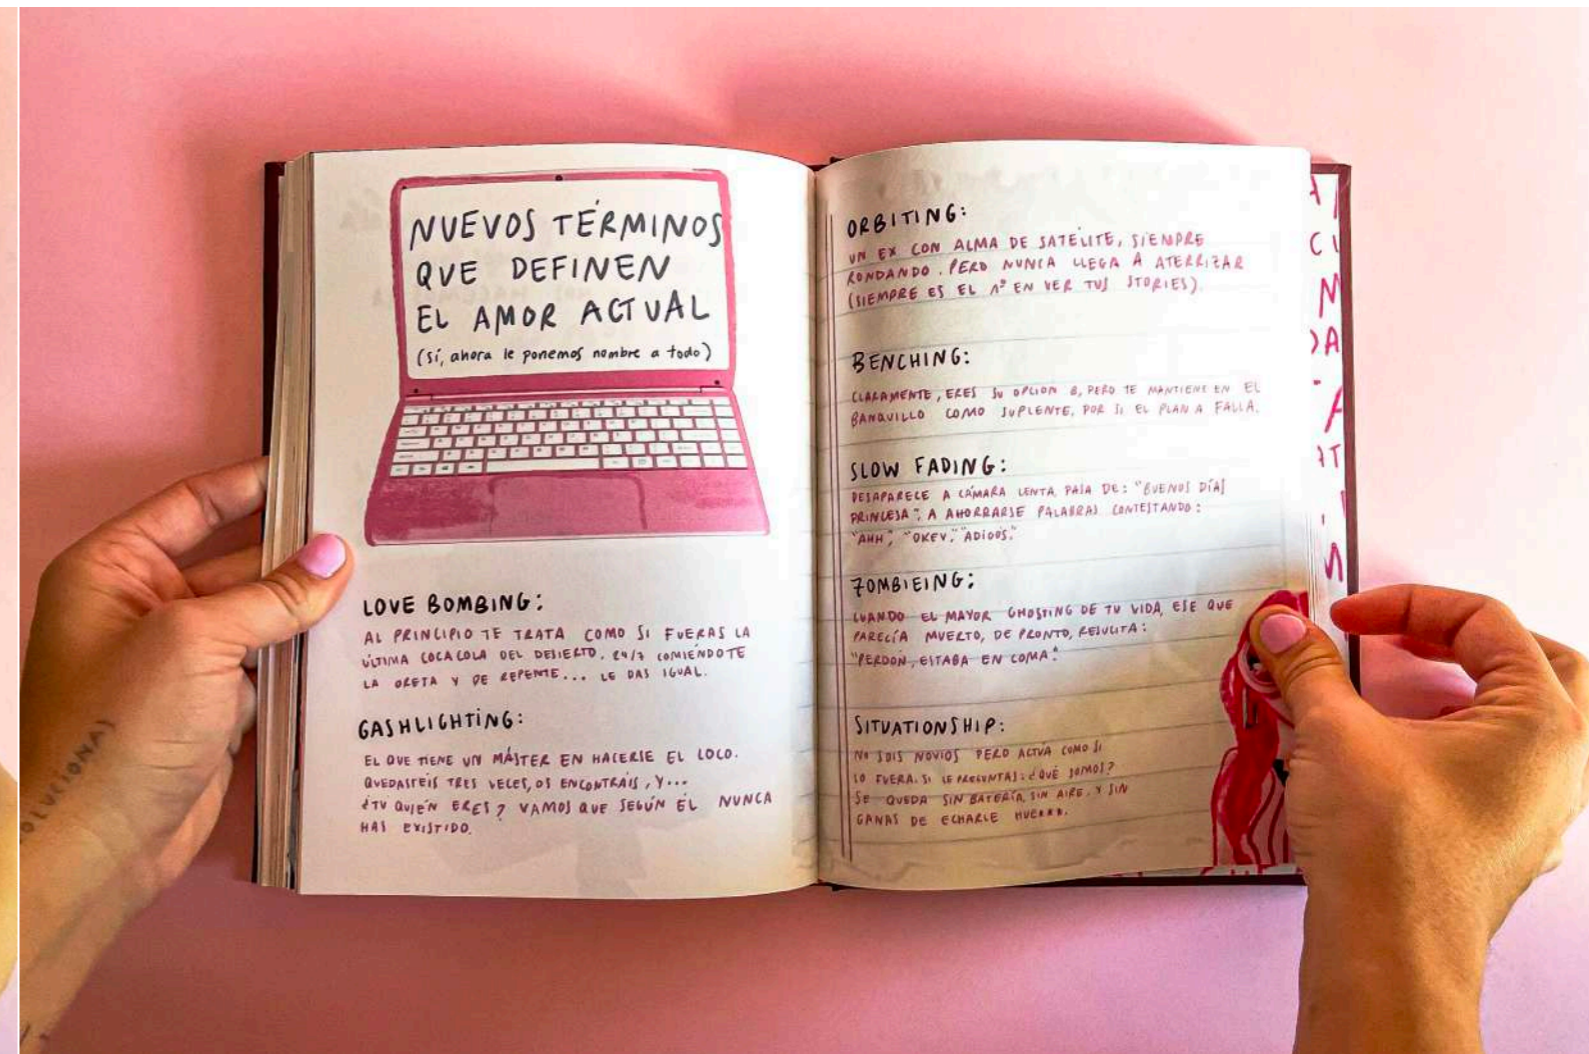 NUEVOS TÉRMINOS
QUE DEFINEN
EL AMOR ACTUAL
(Sí, ahora le ponemos nombre a todo)
LOVE BOMBING:
AL PRINCIPIO TE TRATA COMO SI FUERAS LA
ÚLTIMA COCACOLA DEL DESIERTO. 24/7 COMIÉNDOTE
LA OREJA Y DE REPENTE... LE DAS IGUAL.
GASHLIGHTING:
EL QUE TIENE UN MÁSTER EN HACERSE EL LOCO.
QUEDASTEIS TRES VECES, OS ENCONTRÁIS, Y...
¿TU QUIÉN ERES? VAMOS QUE SEGÚN ÉL NUNCA
HAS EXISTIDO.
ORBITING:
UN EX CON ALMA DE SATÉLITE, SIEMPRE
RONDANDO. PERO NUNCA LLEGA A ATERRIZAR
(SIEMPRE ES EL 1º EN VER TUS STORIES).
BENCHING:
CLARAMENTE, ERES SU OPCIÓN B, PERO TE MANTIENE EN EL
BANQUILLO COMO SUPLENTE, POR SI EL PLAN A FALLA.
SLOW FADING:
DESAPARECE A CÁMARA LENTA. PASA DE: "BUENOS DÍAS
PRINCESA", A AHORRARSE PALABRAS CONTESTANDO:
"AHH", "OKEY", "ADIOOS".
ZOMBIEING:
CUANDO EL MAYOR GHOSTING DE TU VIDA, ESE QUE
PARECÍA MUERTO, DE PRONTO, RESUCITA:
"PERDÓN, ESTABA EN COMA."
SITUATIONSHIP:
NO SOIS NOVIOS PERO ACTÚA COMO SI
LO FUERA. SI LE PREGUNTAS: ¿QUÉ SOMOS?
SE QUEDA SIN BATERÍA, SIN AIRE. Y SIN
GANAS DE ECHARLE HUE****.